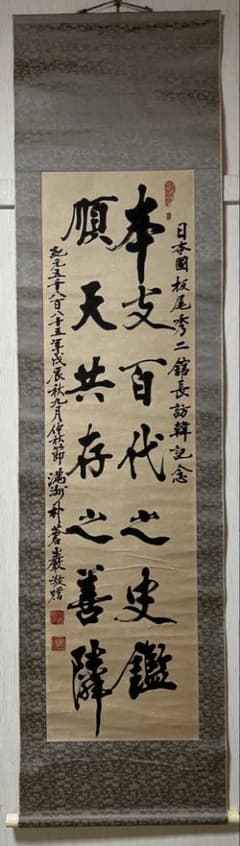 日本國板尾秀二館長訪韓記念
本支百代之史鑑
順天共存之善隣
紀元五千八百八十五年戊辰秋九月仲秋節 滿洲朴蒼巖敬贈